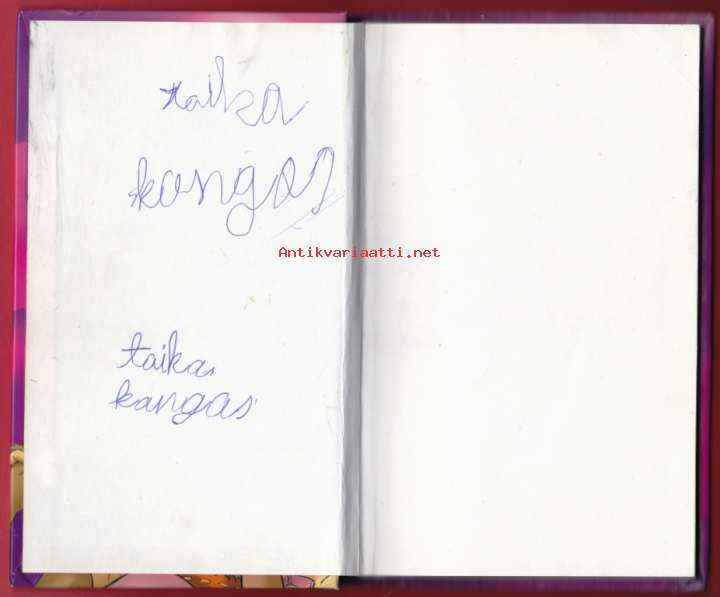 taika
kangas
Antikvariaatti.net
taika
kangas